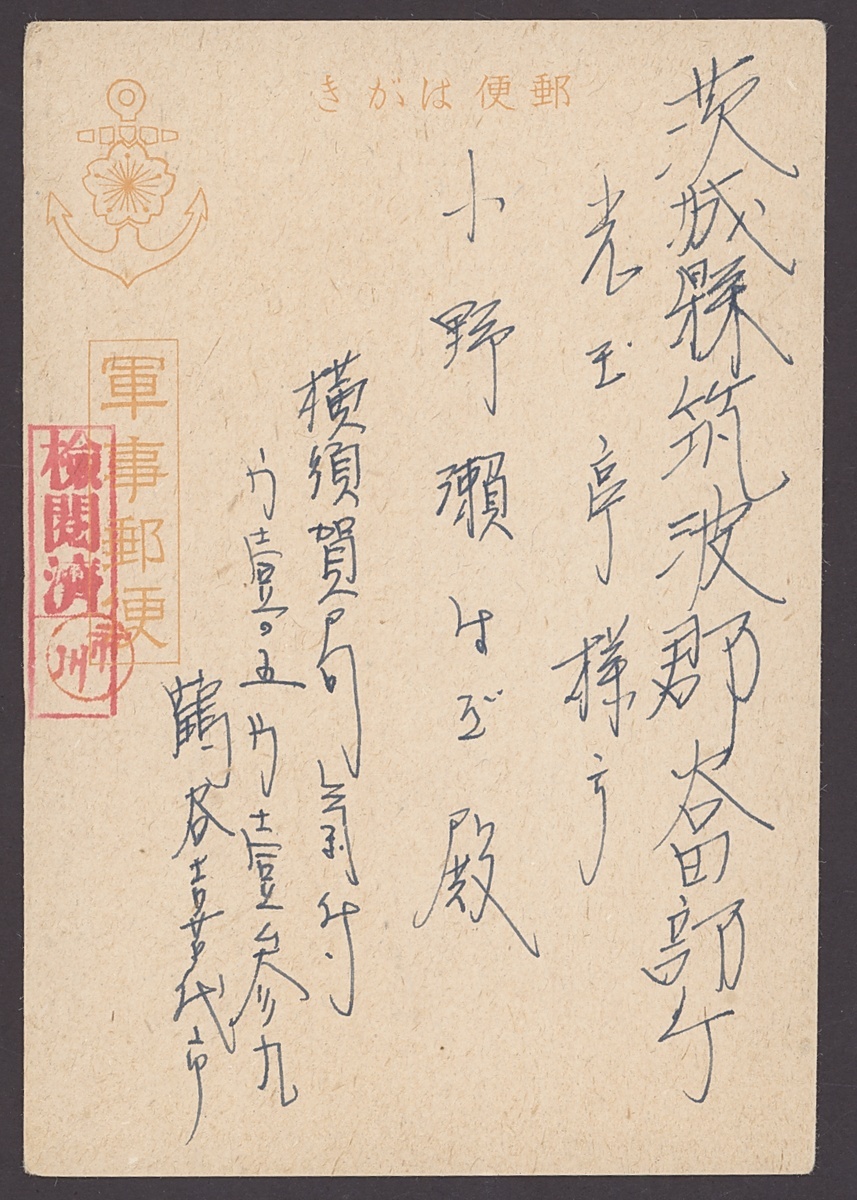 郵便はがき
茨城縣筑波郡谷田部町
光玉亭様方
小野瀬せ殿
横須賀局氣付
ウ壹〇五ウ壹参九
鶴谷吉
軍事郵便
検閲済
市川